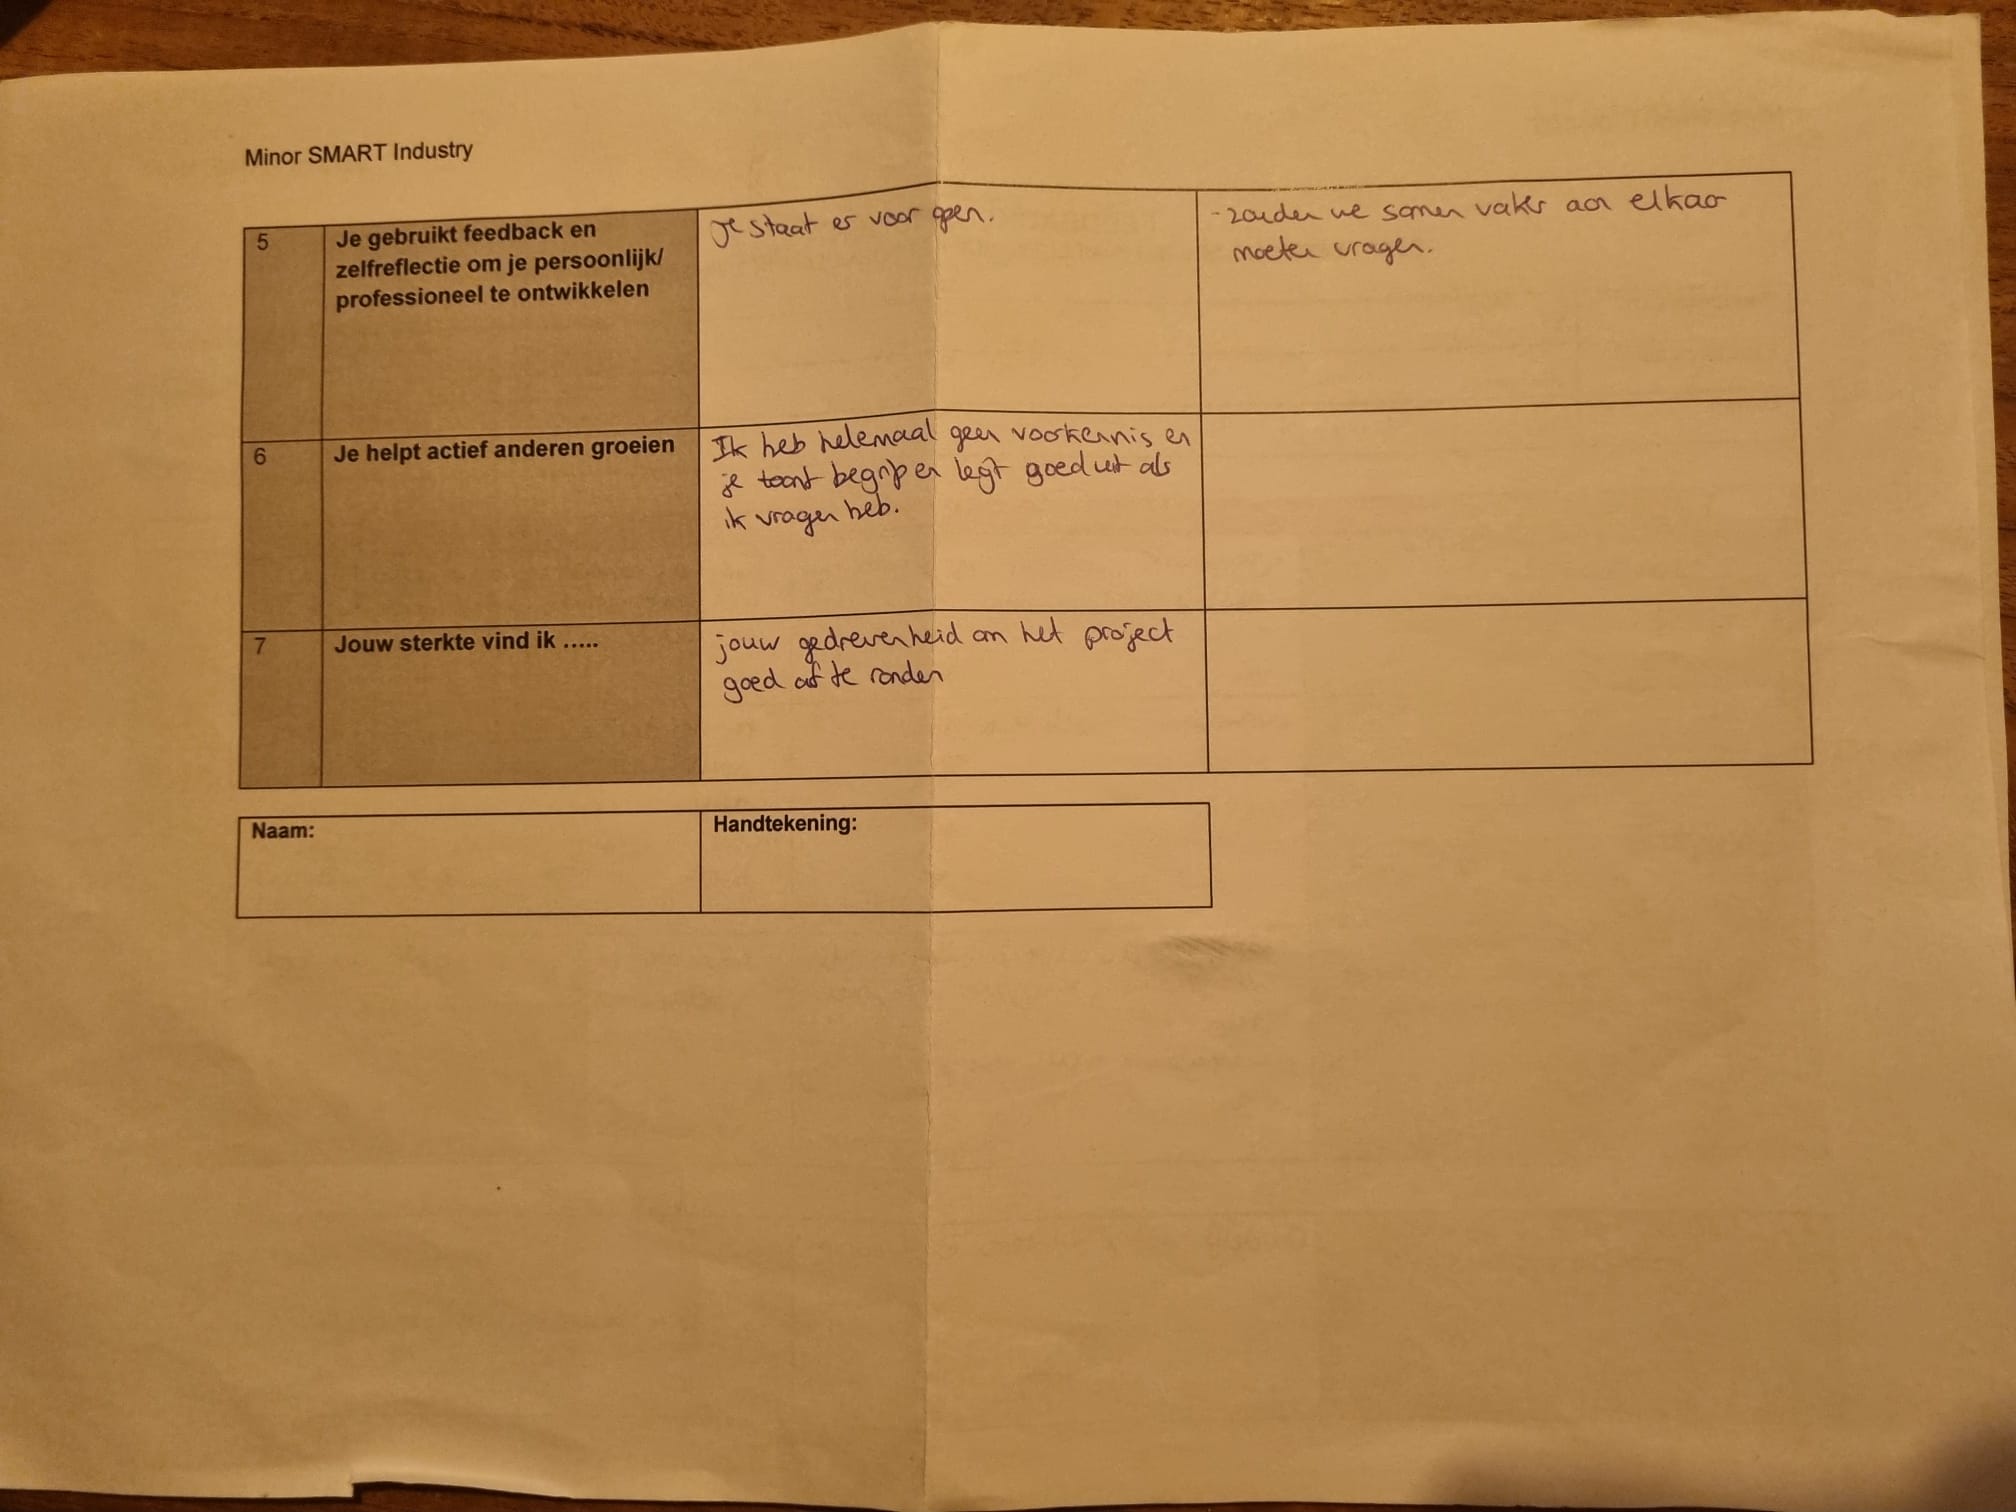 Minor SMART Industry
5
Je gebruikt feedback en
zelfreflectie om je persoonlijk/
professioneel te ontwikkelen
Je staat er voor open.
- zouden we samen vaker aan elkaar
moeten vragen.
6
Je helpt actief anderen groeien
Ik heb helemaal geen voorkennis en
je toont begrip en legt goed uit als
ik vragen heb.
7
Jouw sterkte vind ik .....
jouw gedrevenheid om het project
goed af te ronden
Naam:
Handtekening: